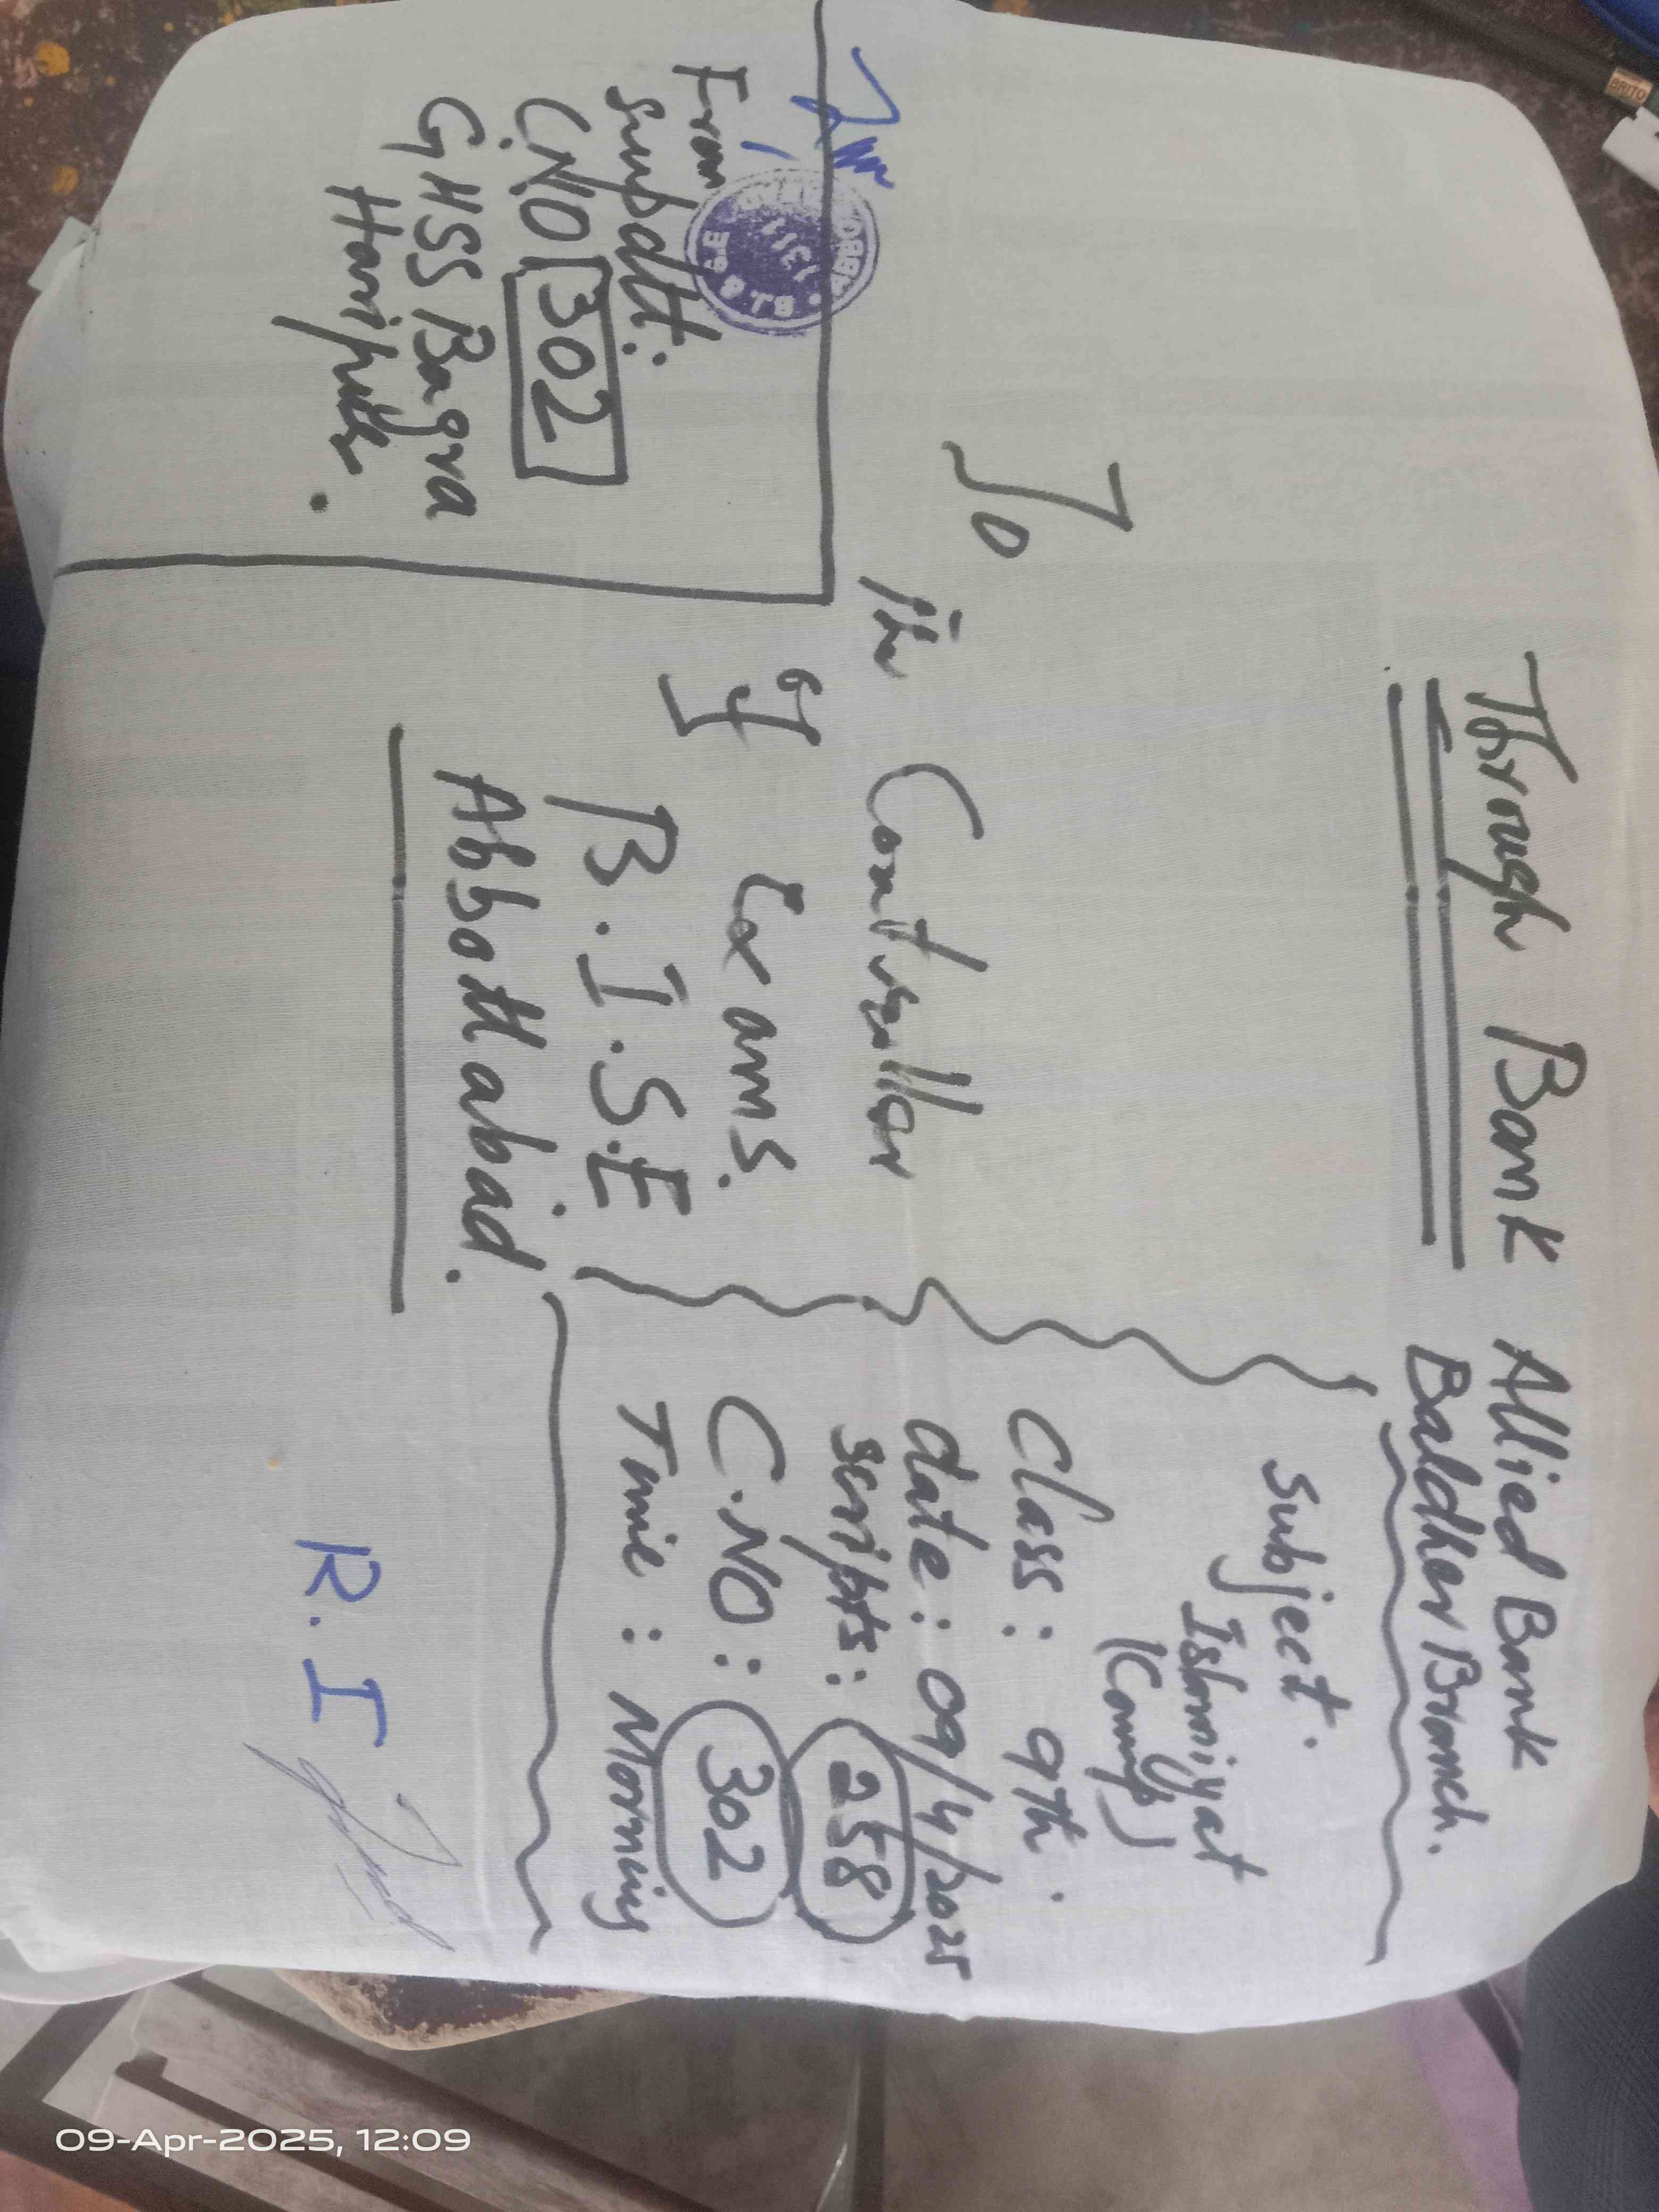 Through Bank
Allied Bank
Baldher Branch.
To
The Controller
of Exams.
B.I.S.E
Abbottabad.
Subject.
Islamiyat
(Comp)
Class: 9th.
date: 09/4/2025
scripts: 258
C.NO: 302
Time: Morning
From
Supdtt:
C.NO 302
GHSS Bagra
Haripur.
R.I
BRITO
09-Apr-2025, 12:09